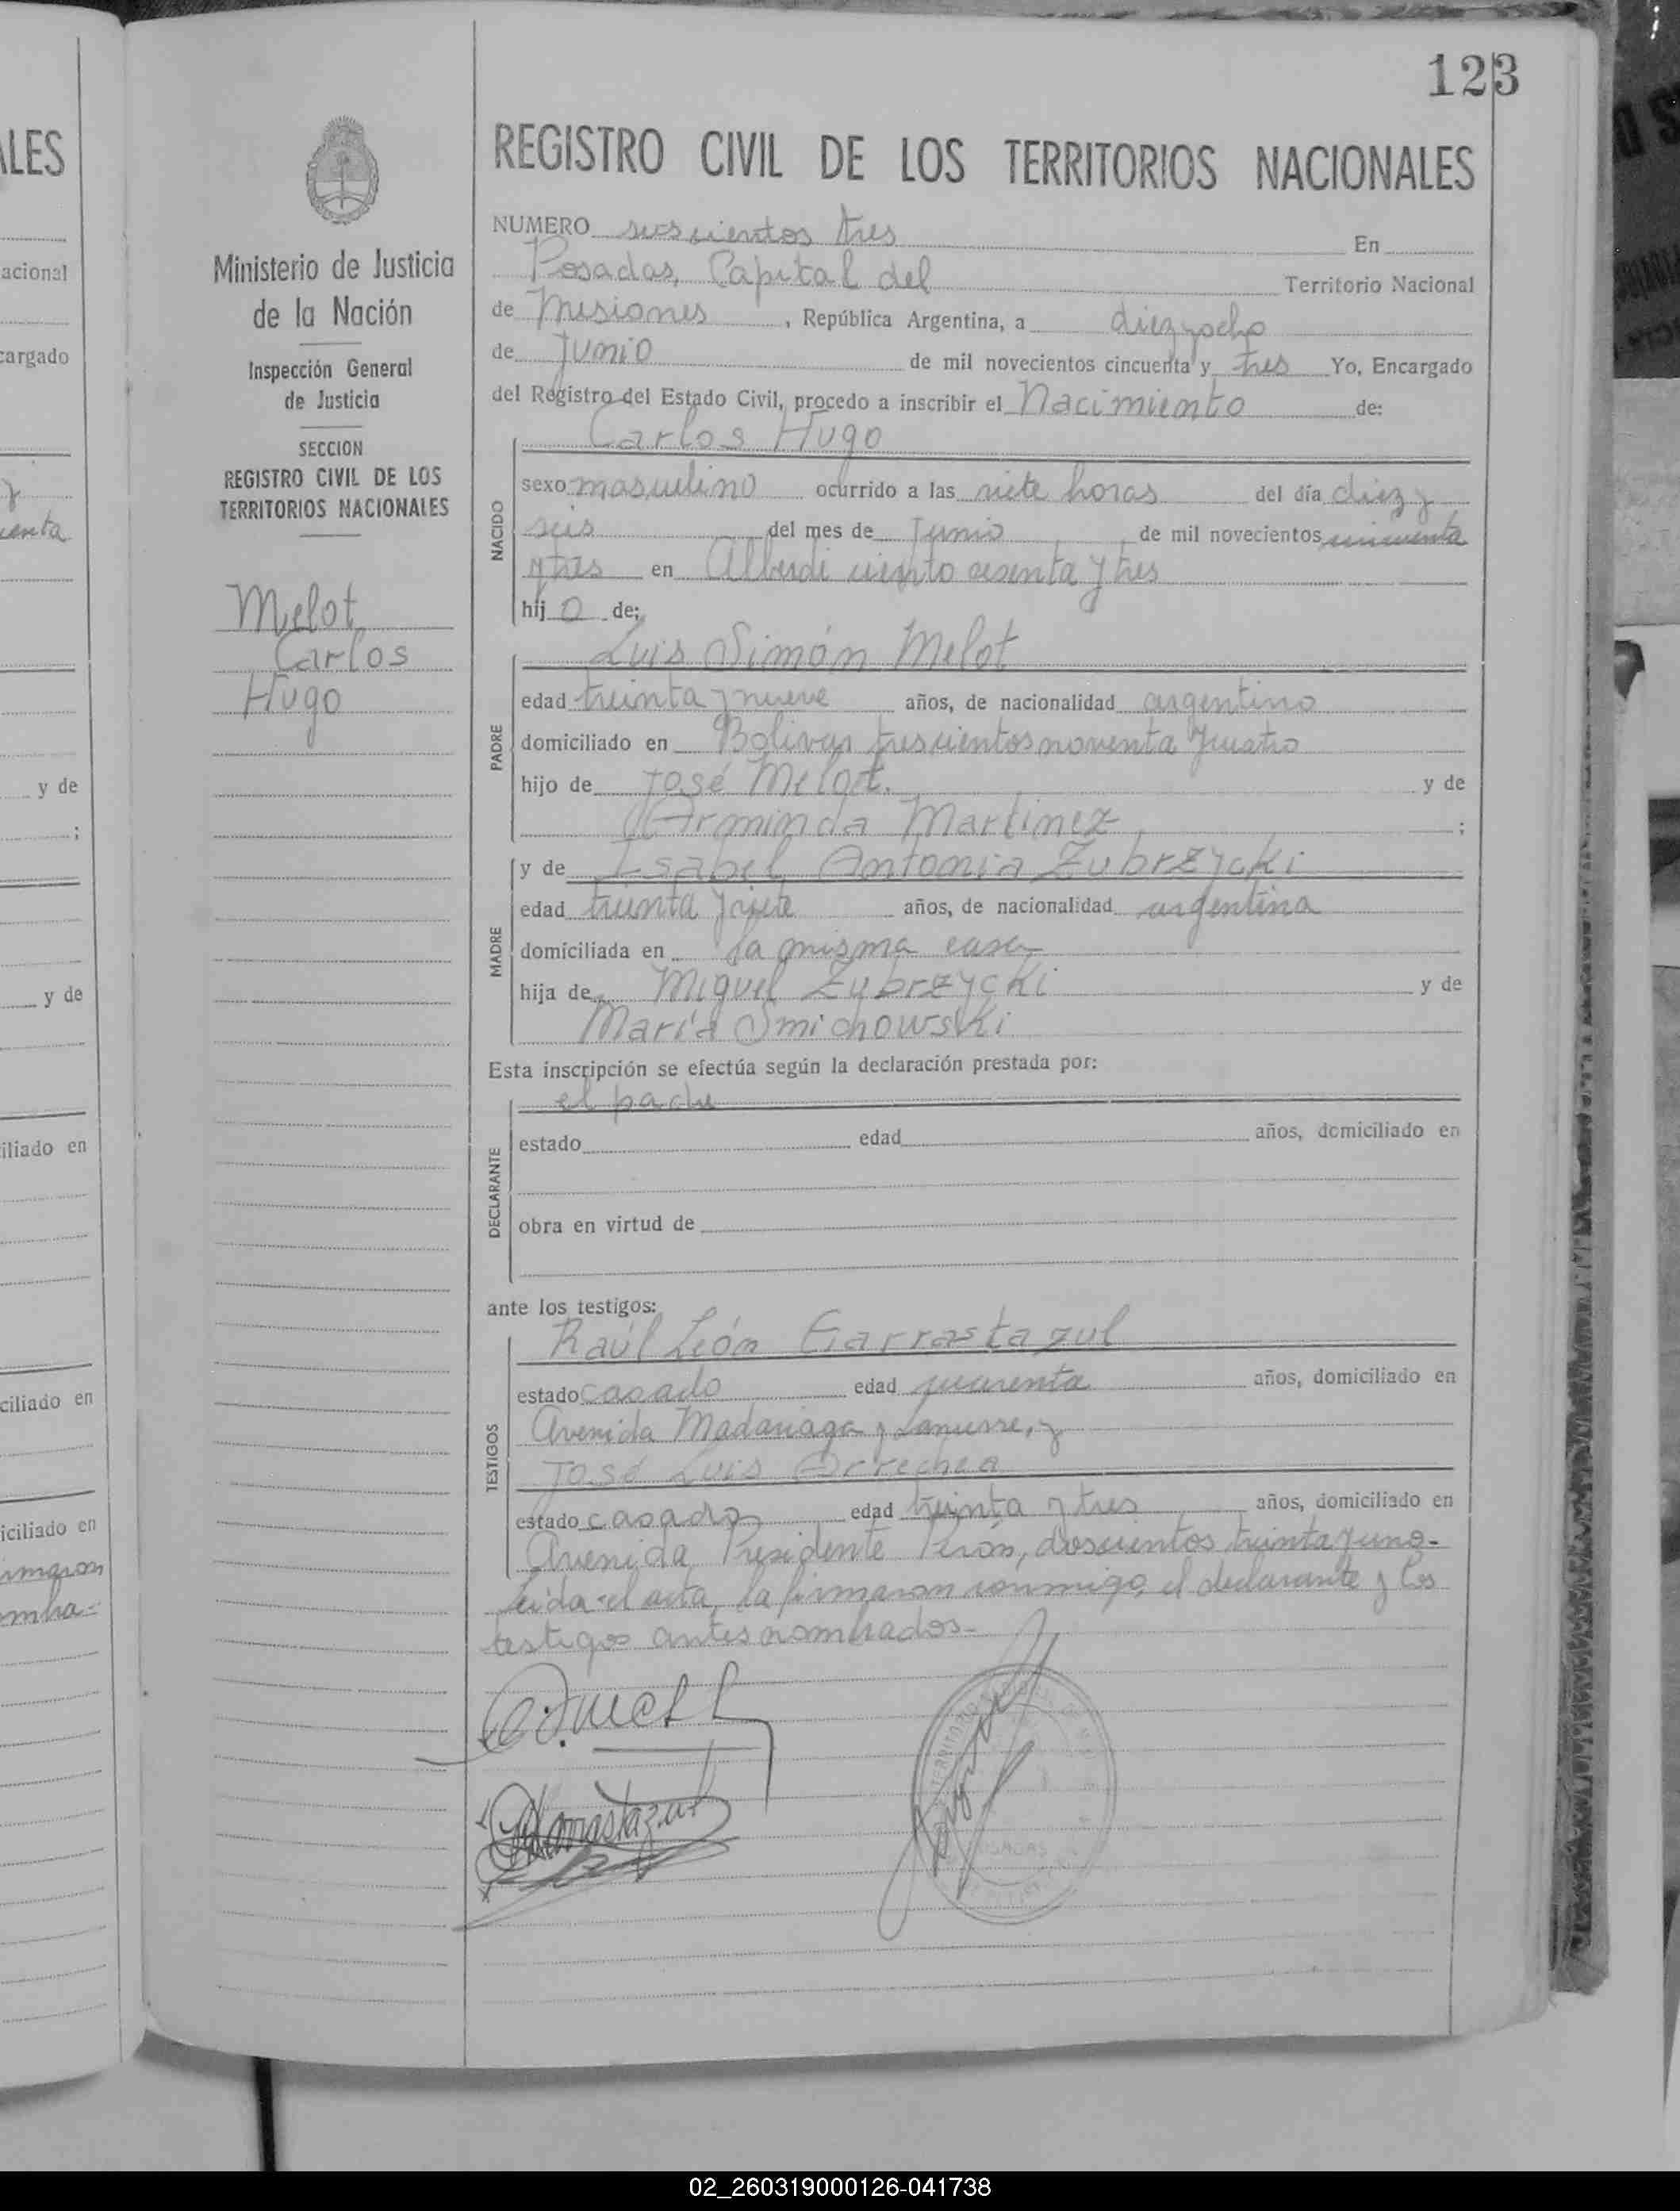 123
ALES
acional
cargado
y
uenta
y de
;
y de
iliado en
ciliado en
iciliado en
irmaron
ombra-
Ministerio de Justicia
de la Nación
Inspección General
de Justicia
SECCION
REGISTRO CIVIL DE LOS
TERRITORIOS NACIONALES
Melot
Carlos
Hugo
REGISTRO CIVIL DE LOS TERRITORIOS NACIONALES
NUMERO seiscientos tres En
Posadas, Capital del Territorio Nacional
de Misiones, República Argentina, a diez y ocho
de Junio de mil novecientos cincuenta y tres Yo, Encargado
del Registro del Estado Civil, procedo a inscribir el Nacimiento de:
Carlos Hugo
NACIDO
sexo masculino ocurrido a las siete horas del día diez y
seis del mes de Junio de mil novecientos cincuenta
y tres en Alberdi ciento sesenta y tres
hij o de:
Luis Simón Melot
PADRE
edad treinta y nueve años, de nacionalidad argentino
domiciliado en Bolivar trescientos noventa y cuatro
hijo de José Melot. y de
Arminda Martinez ;
y de Isabel Antonia Zubrzycki
MADRE
edad treinta y siete años, de nacionalidad argentina
domiciliada en la misma casa
hija de Miguel Zubrzycki y de
María Smichowski
Esta inscripción se efectúa según la declaración prestada por:
el padre
DECLARANTE
estado edad años, domiciliado en
obra en virtud de
ante los testigos:
Raúl León Garrastazul
TESTIGOS
estado casado edad cuarenta años, domiciliado en
Avenida Madariaga y Lanusse, y
José Luis Arrechea
estado casado edad treinta y tres años, domiciliado en
Avenida Presidente Perón, doscientos treinta y uno-
Leida el acta, la firmaron conmigo, el declarante y los
testigos antes nombrados-
02_260319000126-041738